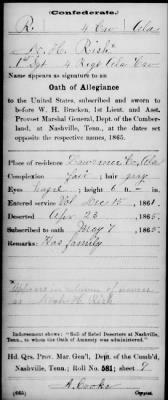 Confederate.
R. 4 Cav Ala
N. H. Rish
1" Sgt 4 Regt Ala Cav
Name appears as signature to an
Oath of Allegiance
to the United States, subscribed and sworn to
before W. H. Bracken, 1st Lieut. and Asst.
Provost Marshal General, Dept. of the Cumber-
land, at Nashville, Tenn., at the dates set
opposite the respective names, 1865.
Place of residence Lawrence Co, Ala
Complexion fair; hair gray
Eyes hazel; height 6 ft. — in.
Entered service Vol Dec 15, 1861.
Deserted Apr 23, 1865.
Subscribed to oath May 7, 1865.
Remarks: Has family
Appears in column of names
as Rish
Indorsement shows: "Roll of Rebel Deserters at Nashville,
Tenn., to whom the Oath of Amnesty was administered."
Hd. Qrs. Prov. Mar. Gen'l, Dept. of the Cumb'd,
Nashville, Tenn.; Roll No. 581; sheet 9
A. Cooke
(665) Copyist.